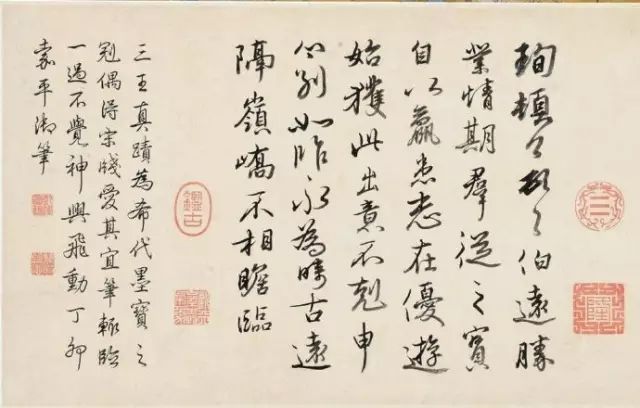 珣頓首頓首伯遠勝
業情期羣從之寶
自以羸患志在優遊
始獲此出意不剋申
分別如昨永為疇古遠
隔嶺嶠不相瞻臨
三王真蹟為希代墨寶之
冠偶得宋牋愛其宜筆輒臨
一過不覺神興飛動丁卯
嘉平御筆